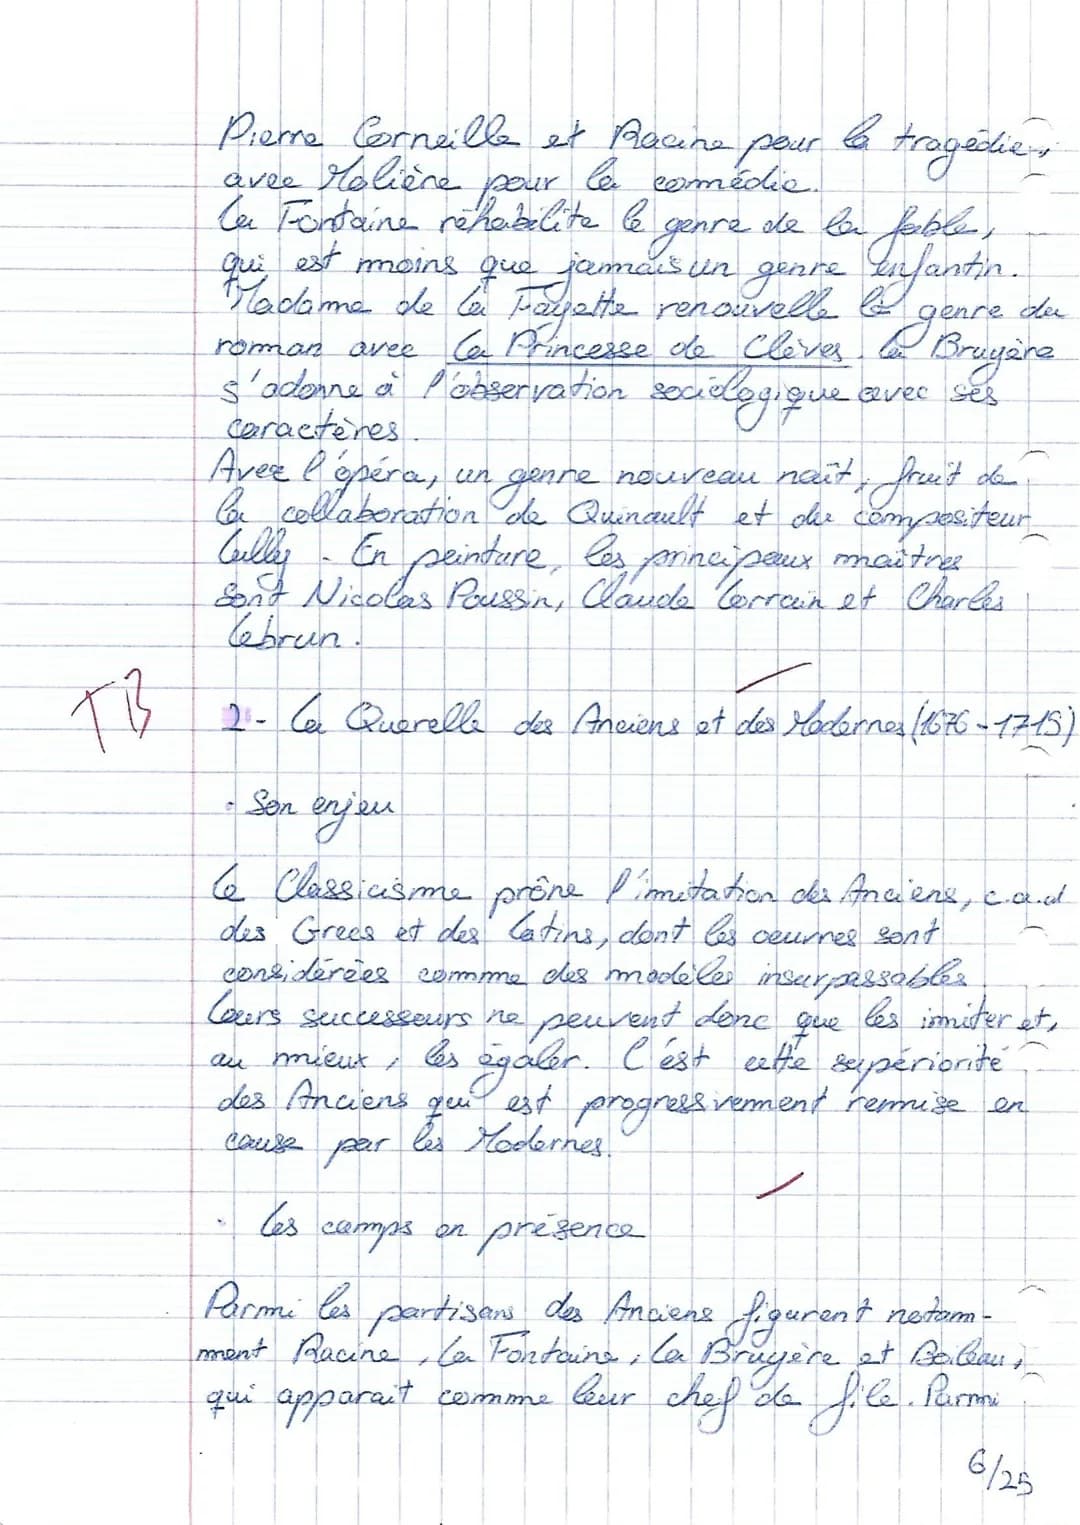 Pierre Corneille et Racine pour la tragédie,
avec Molière pour la comédie.
La Fontaine réhabilite le genre de la fable,
qui est moins que jamais un genre enfantin.
Madame de La Fayette renouvelle le genre du
roman avec La Princesse de Clèves. La Bruyère
s'adonne à l'observation sociologique avec ses
caractères.
Avec l'opéra, un genre nouveau naît, fruit de
la collaboration de Quinault et du compositeur
Lully. En peinture, les principaux maîtres
sont Nicolas Poussin, Claude Lorrain et Charles
Lebrun.
TB
2- La Querelle des Anciens et des Modernes (1676-1715)
· Son enjeu
Le Classicisme prône l'imitation des Anciens, c.a.d
des Grecs et des Latins, dont les oeuvres sont
considérées comme des modèles insurpassables.
Leurs successeurs ne peuvent donc que les imiter et,
au mieux, les égaler. C'est cette supériorité
des Anciens qui est progressivement remise en
cause par les Modernes.
· Les camps en présence
Parmi les partisans des Anciens figurent notam-
ment Racine, La Fontaine, La Bruyère et Boileau,
qui apparait comme leur chef de file. Parmi
6/25